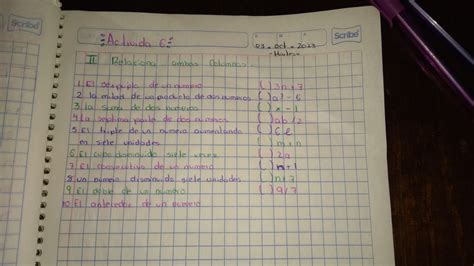 Scribe
Activida 6
03 - oct - 2023
Martes
Scribe
II Relaciona ambas columnas
1. El sextuplo de un numero ( ) 3n+7
2 la mitad de un producto de dos numeros ( ) a³-6
3 la suma de dos numeros ( ) x-1
4 La septima parte de dos numeros ( ) ab/2
5 El triple de un numero aumentando ( ) 6e
en siete unidades ( ) m+n
6 El cubo disminuido siete veces ( ) 2a
7 El consecutivo de un numero ( ) n+1
8 un numero disminuido siete unidades ( ) n+7
9 El doble de un numero ( ) a/7
10 El antecedor de un numero